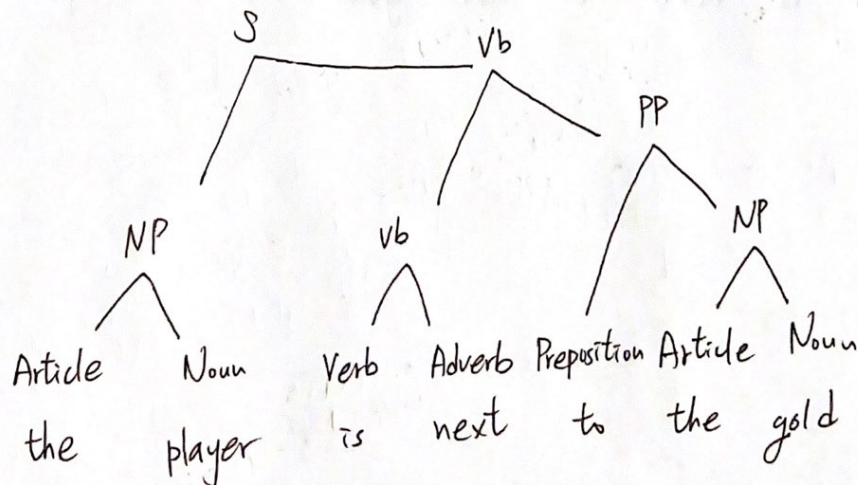 S Vb
PP
NP Vb NP
Article Noun Verb Adverb Preposition Article Noun
the player is next to the gold